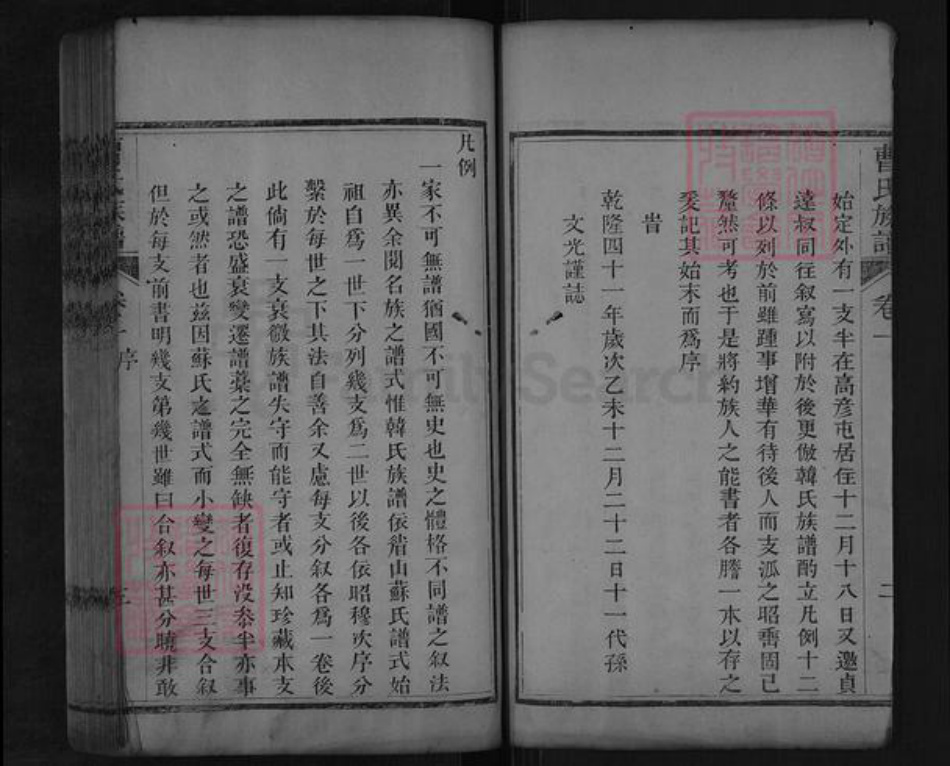 曹氏族譜
卷一
二
始定外有一支半在高彦屯居住十二月十八日又邀貞
達叔同往叙寫以附於後更倣韓氏族譜酌立凡例十二
條以列於前雖踵事增華有待後人而支派之昭垂固已
釐然可考也于是將約族人之能書者各謄一本以存之
爰記其始末而爲序
旹
乾隆四十一年歲次乙未十二月二十二日十一代孫
文光謹誌
凡例
一家不可無譜猶國不可無史也史之體格不同譜之叙法
亦異余閱名族之譜式惟韓氏族譜依眉山蘇氏譜式始
祖自爲一世下分列幾支爲二世以後各依昭穆次序分
繫於每世之下其法自善余又慮每支分叙各爲一卷後
此倘有一支衰微族譜失守而能守者或止知珍藏本支
之譜恐盛衰變遷譜藁之完全無缺者復存没叅半亦事
之或然者也兹因蘇氏之譜式而小變之每世三支合叙
但於每支前書明幾支第幾世雖曰合叙亦甚分曉非敢
序
三
FamilySearch